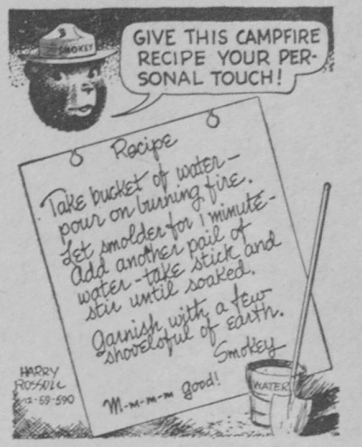 SMOKEY
GIVE THIS CAMPFIRE
RECIPE YOUR PER-
SONAL TOUCH!
Recipe
Take bucket of water—
pour on burning fire.
Let smolder for 1 minute-
Add another pail of
water - take stick and
stir until soaked.
Garnish with a few
shovelsful of earth.
Smokey
M-m-m-m good!
HARRY
ROSSOLL
12-59-590
WATER